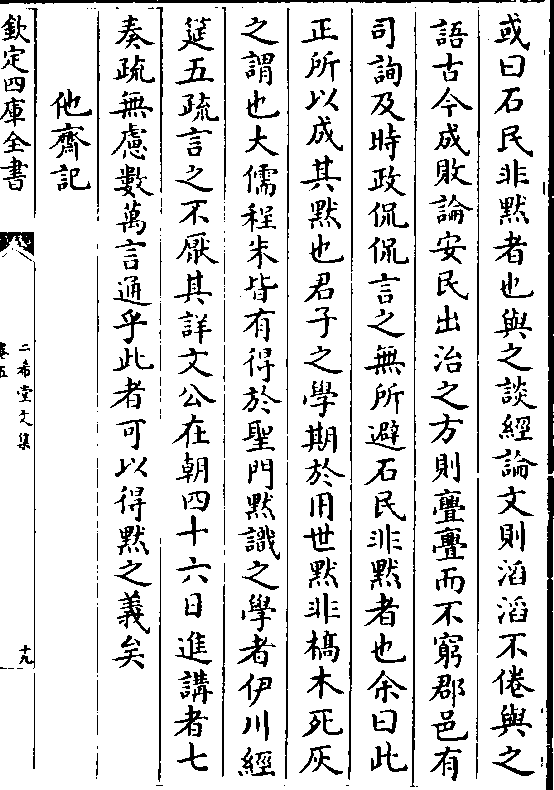 或曰石民非黙者也與之談經論文則滔滔不倦與之
語古今成敗論安民出治之方則亹亹而不窮郡邑有
司詢及時政侃侃言之無所避石民非黙者也余曰此
正所以成其黙也君子之學期於用世黙非槁木死灰
之謂也大儒程朱皆有得於聖門黙識之學者伊川經
筵五疏言之不厭其詳文公在朝四十六日進講者七
奏疏無慮數萬言通乎此者可以得黙之義矣
他齋記
欽定四庫全書
二希堂文集
卷五
十九